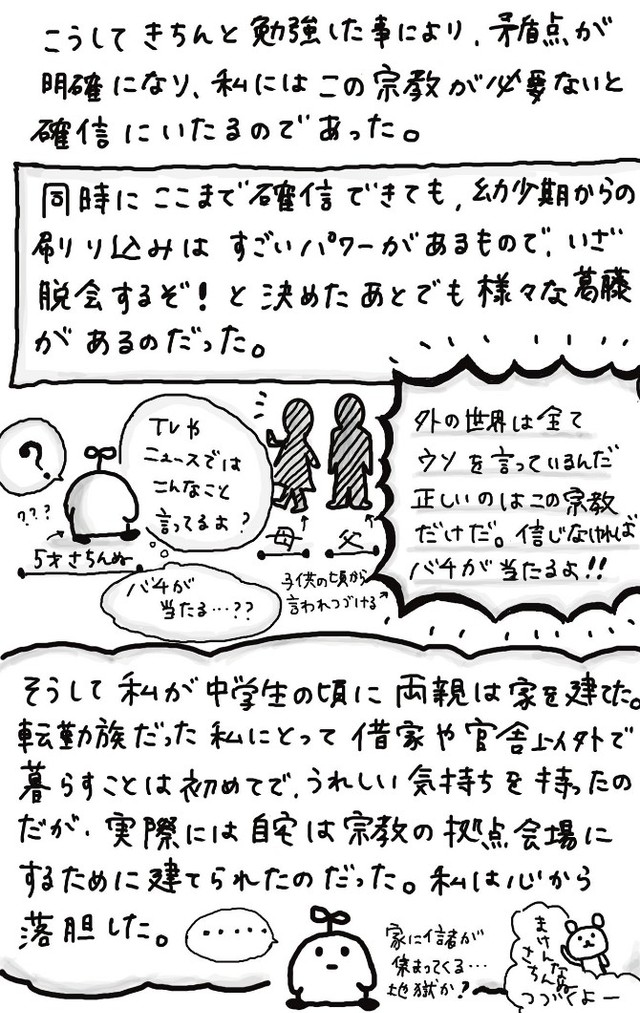 こうしてきちんと勉強した事により、矛盾点が
明確になり、私にはこの宗教が必要ないと
確信にいたるのであった。
同時にここまで確信できても、幼少期からの
刷り込みはすごいパワーがあるもので、いざ
脱会するぞ！と決めたあとでも様々な葛藤
があるのだった。
?
???
5才さちんぬ
TVや
ニュースでは
こんなこと
言ってるよ?
バチが
当たる…??
母
父
子供の頃から
言われつづける
外の世界は全て
ウソを言っているんだ
正しいのはこの宗教
だけだ。信じなければ
バチが当たるよ!!
そうして私が中学生の頃に両親は家を建てた。
転勤族だった私にとって借家や官舎以外で
暮らすことは初めてで、うれしい気持ちを持ったの
だが、実際には自宅は宗教の拠点会場に
するために建てられたのだった。私は心から
落胆した。
.....
家に信者が
集まってくる…
地獄か?
まけんなな
さちんぬ
つづくよー